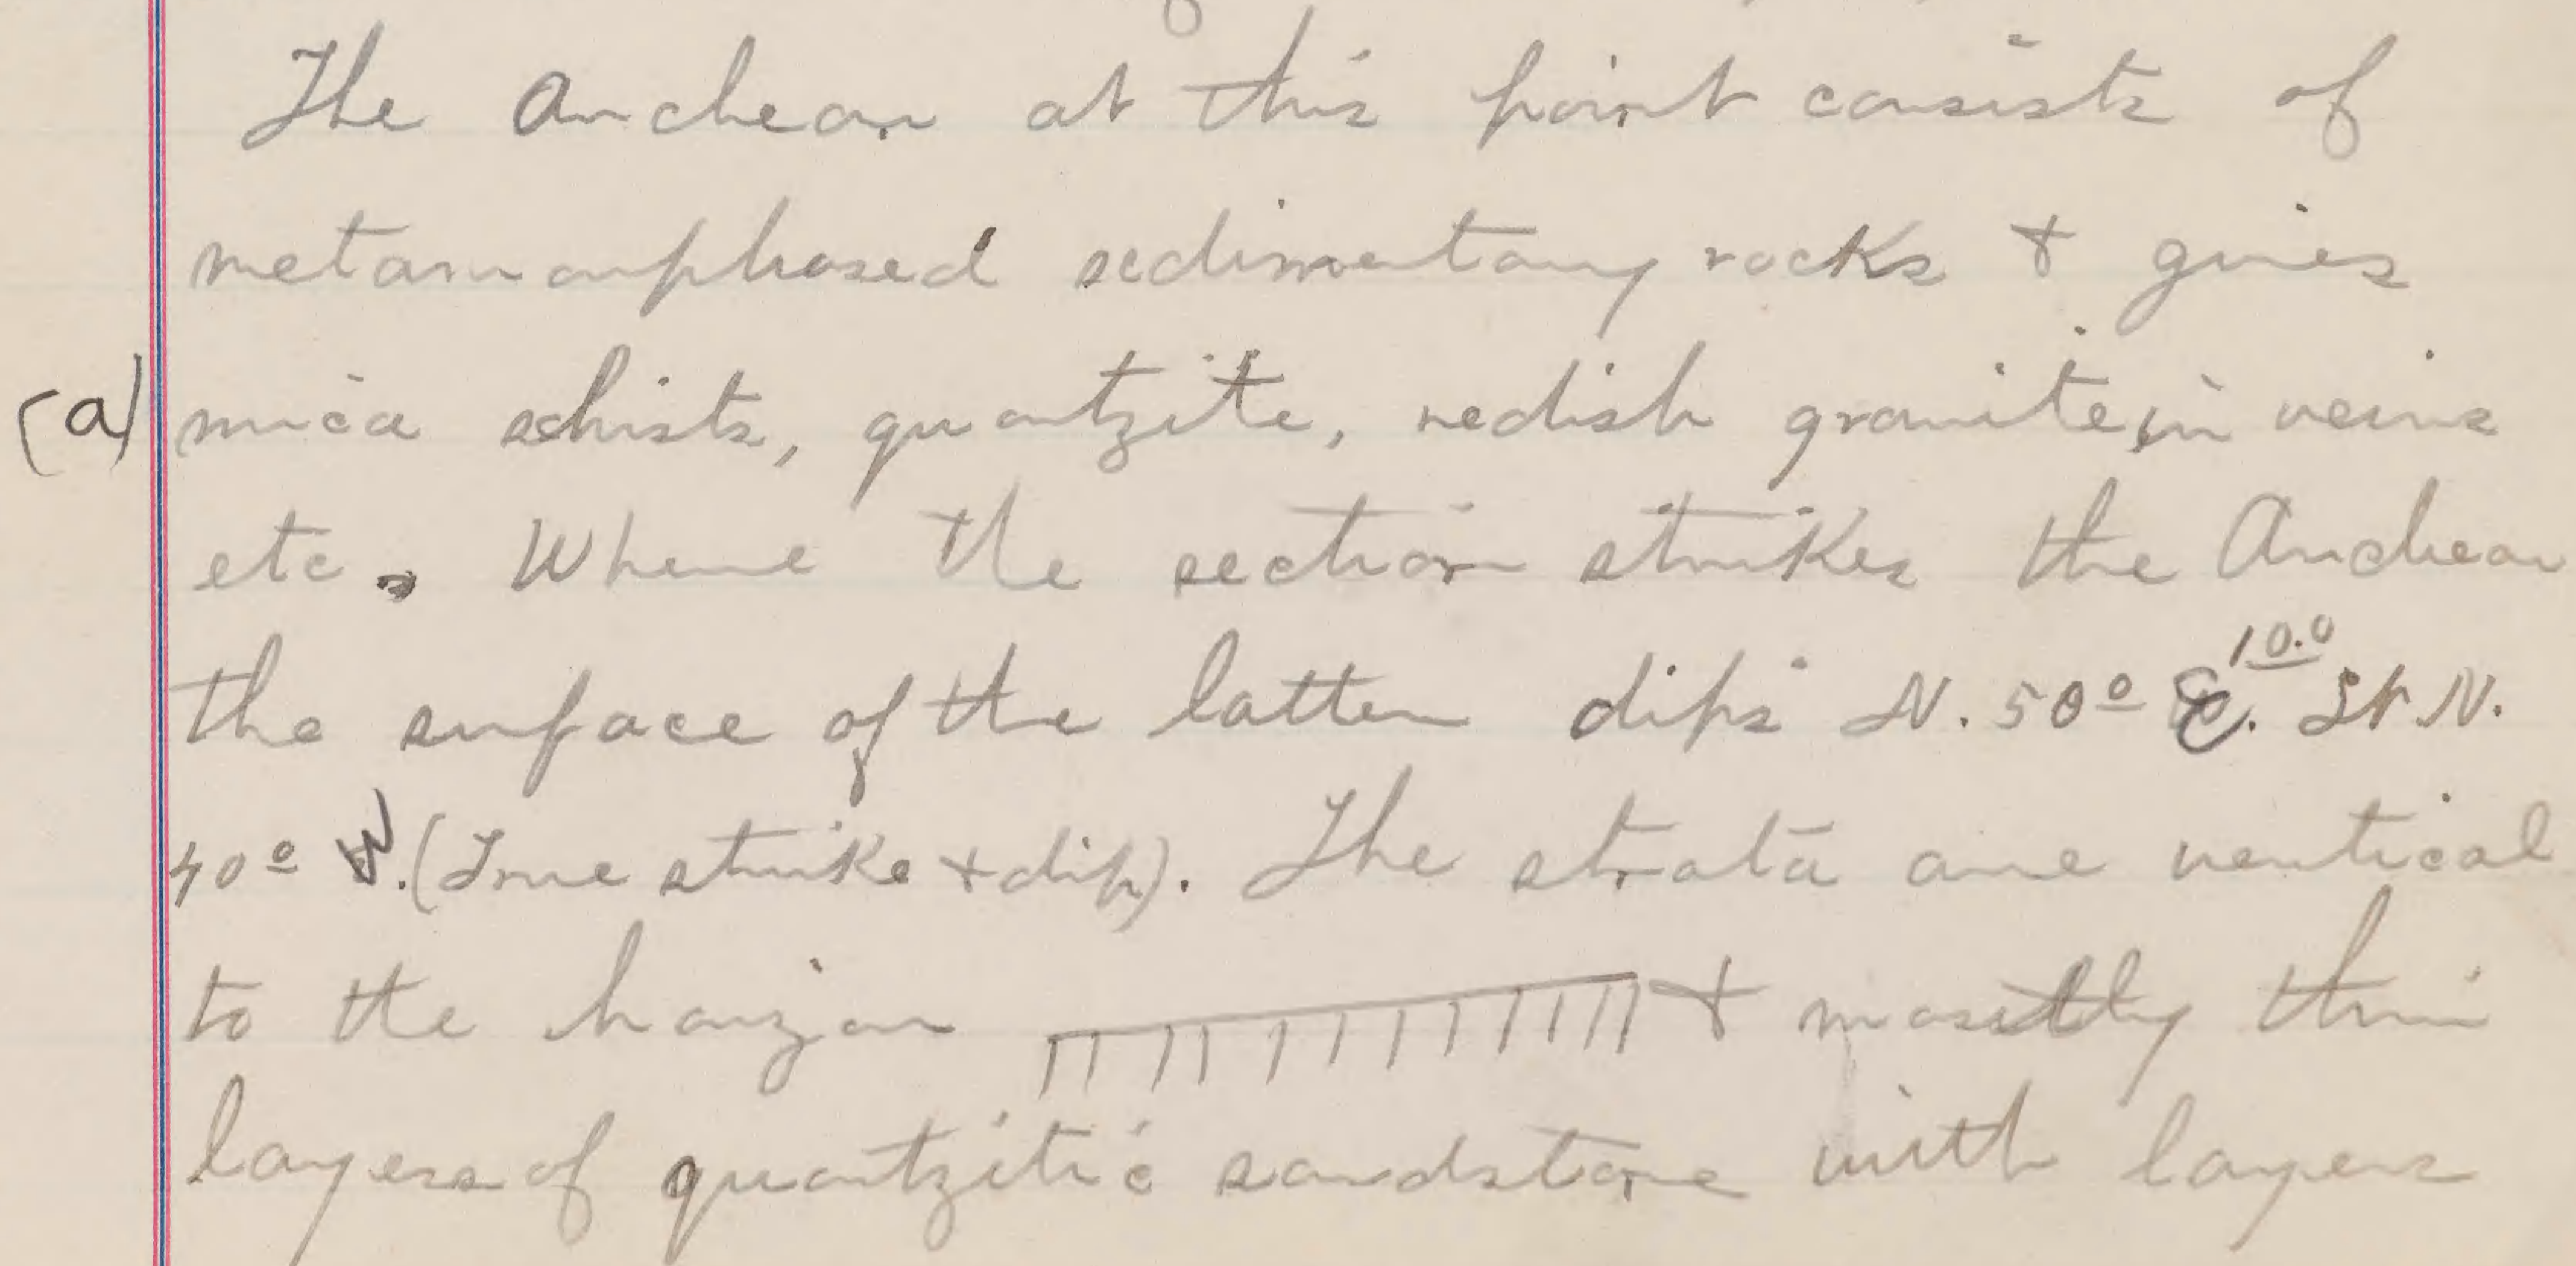 The Archean at this point consists of
metamorphosed sedimentary rocks & gives
(a) mica schists, quartzite, redish granite, in veins
etc. Where the section strikes the Archean
the surface of the latter dips N. 50° E. 10.0 St N.
40° W. (True strike & dip). The strata are vertical
to the horizon & mostly thin
layers of quartzitic sandstone with layers